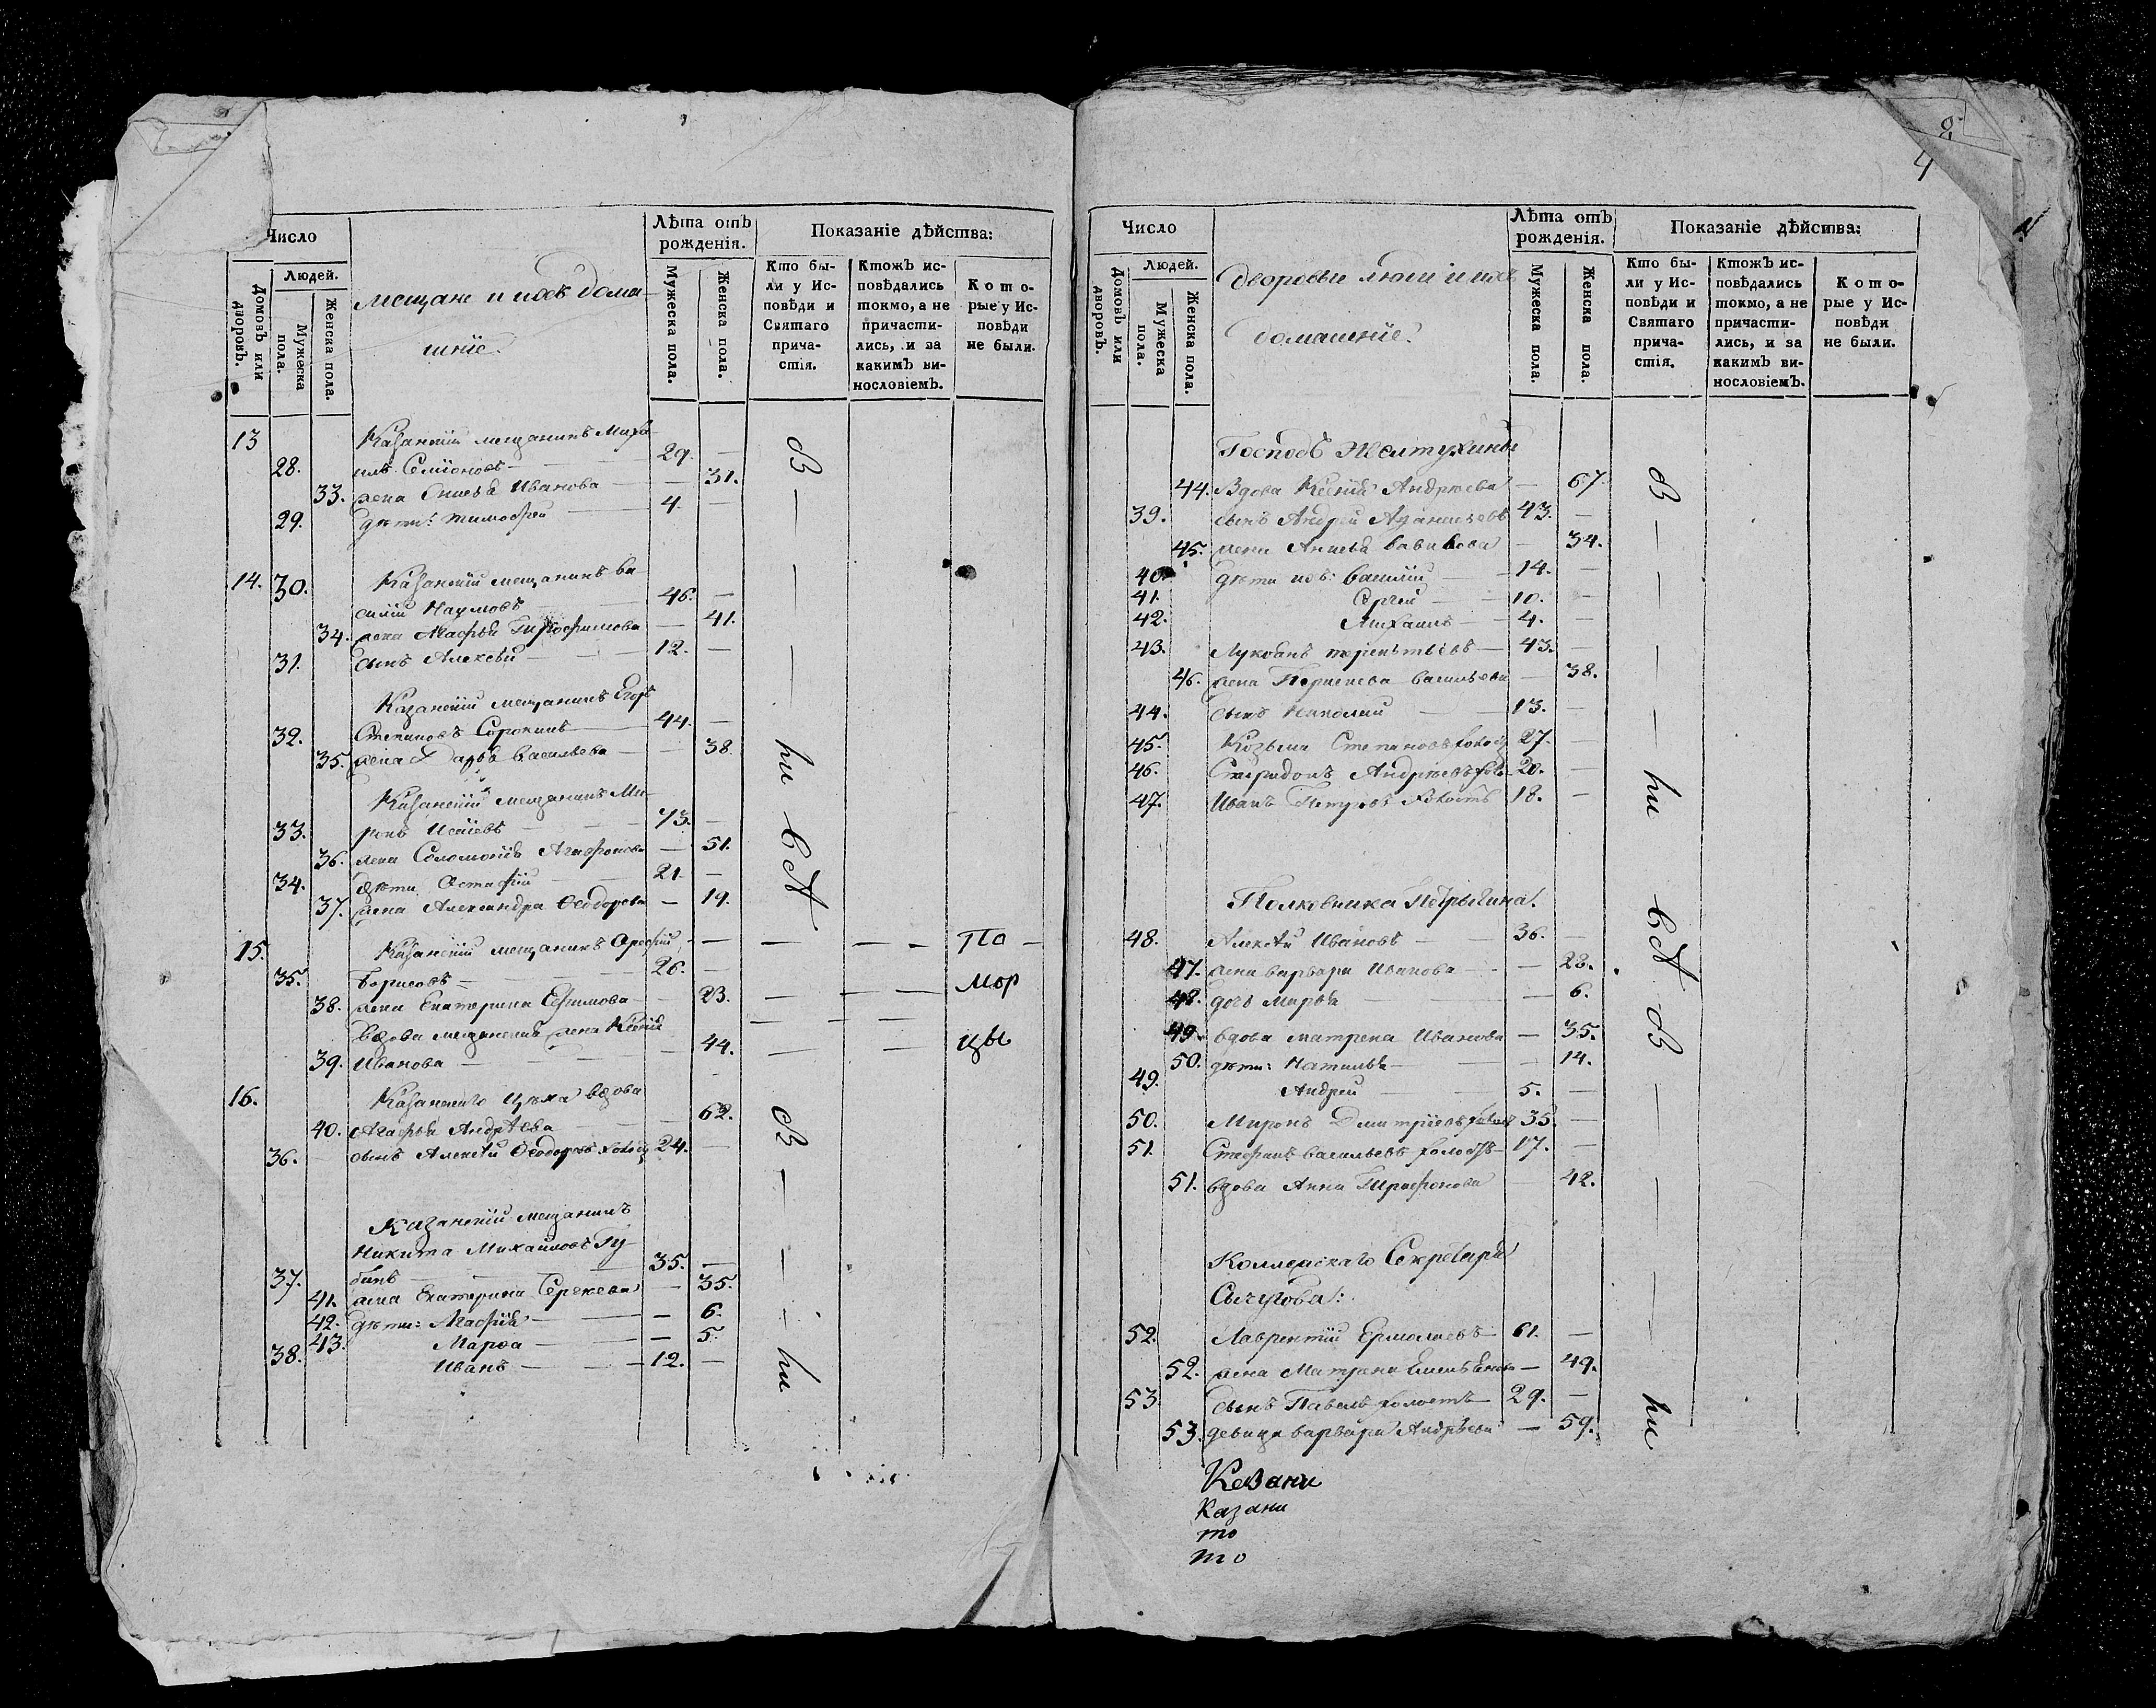 Число
Людей.
Домовъ или дворовъ.
Мужеска пола.
Женска пола.
Мещане и ихъ дома-
шніе.
Лѣта отъ рожденія.
Мужеска пола.
Женска пола.
Показаніе дѣйства:
Кто бы-
ли у Ис-
повѣди и
Святаго
прича-
стія.
Ктожъ ис-
повѣдались
токмо, а не
причасти-
лись, и за
какимъ ви-
нословіемъ.
Кото-
рые у Ис-
повѣди
не были.
13 Казанскій мещанинъ Миха-
28. илъ Семіоновъ — 29. —
33. жена Ениева Иванова — — 31.
29. дѣти: Тимофей — 4. —
14. 30. Казанскій мещанинъ Ва-
силій Наумовъ 46. —
34. жена Агафья — 41.
31. сынъ Алексѣй — 12. —
Казанскій мещанинъ Егоръ
32. Степановъ Сорокинъ 44. —
35. жена Дарья Васильева — — 38
Казанскій мещанинъ Ми-
33. ронъ Исаіевъ 73. —
36. жена Соломонія Агафонова — 51.
34. дѣти Остафій 21 —
37. жена Александра Ѳеодорова — 19.
15. Казанскій мещанинъ — — — — По —
35. Борисовъ — 26. — мор
38. жена Екатерина Ефимова — 23. — — —
Вдова мещанская жена Ксенія — — —
39. Иванова — — 44. — — цы
16. Казанскаго цѣха вдова
40. Агафья Андрѣева 62.
36. сынъ Алексѣй Ѳеодоровъ холос 24. —
Казанскій мещанинъ
Никита Михайловъ Гу-
37. бинъ — 35. —
41. жена Екатерина Сергеева — 35.
42. дѣти: Агафія — — 6.
43. Марѳа — — 5.
38. Иванъ — 12. —
В
ни
вА
В
ни
4
Число
Людей.
Домовъ или дворовъ.
Мужеска пола.
Женска пола.
Дворовые люди и ихъ
домашніе.
Лѣта отъ рожденія.
Мужеска пола.
Женска пола.
Показаніе дѣйства:
Кто бы-
ли у Ис-
повѣди и
Святаго
прича-
стія.
Ктожъ ис-
повѣдались
токмо, а не
причасти-
лись, и за
какимъ ви-
нословіемъ.
Кото-
рые у Ис-
повѣди
не были.
Господъ Желтухины
44. Вдова Ксенія Андреева — 67
39. сынъ Андрей 43. —
45. жена — 34.
40. дѣти ихъ: Василій — 14. —
41. Сергей — 10. —
42. Михаилъ — 4. —
43. Лукьянъ — 43. —
46. жена Васильева — 38.
44. сынъ Николай — 13. —
45. Козьма Степановъ холос 27. —
46. Спиридонъ Андреевъ хол 20. —
47. Иванъ Петровъ холостъ 18. —
Полковника
48. Алексѣй Ивановъ — 36. —
47. жена Варвара Иванова — — 28.
48. дочь Марья — — 6.
49. вдова Матрена Иванова — 35.
50. дѣти: Наталья — — 14.
49. Андрей 5. —
50. Миронъ Димитріевъ холост 35. —
51. Стефанъ Васильевъ холостъ 17. —
51. вдова Анна Трифонова — 42.
Коллежскаго Секретаря
Сычугова:
52. Лаврентій Ермолаевъ — 61. —
52. жена Матрена — 49.
53. сынъ Павелъ холостъ — 29. —
53. девица Варвара Андреева — 59.
В
ни
вА
В
ни
Казани
Казани
то
то